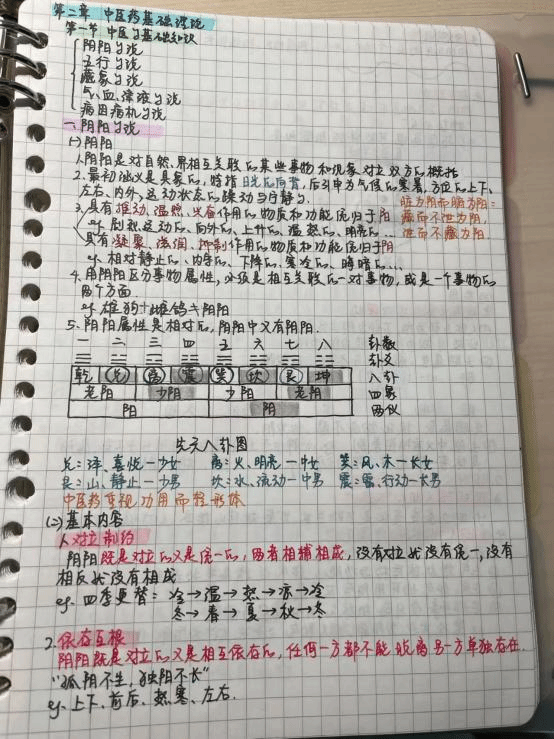 第二章 中医药基础理论
第一节 中医的基础知识
阴阳学说
五行学说
藏象学说
气、血、津液学说
病因病机学说
一、阴阳学说
(一)阴阳
1.阴阳是对自然界相互关联的某些事物和现象对立双方的概括
2.最初涵义是具象的,特指日光的向背,后引申为气候的寒暑,方位的上下、
左右、内外,运动状态的躁动与宁静。
脏为阴而腑为阳:
3.具有推动、温煦、兴奋作用的物质和功能统归于阳
藏而不泄为阴,
eg. 剧烈、运动的、向外的、上升的、温热的、明亮的…
泄而不藏为阳.
具有凝聚、滋润、抑制作用的物质和功能统归于阴
eg. 相对静止的、内守的、下降的、寒冷的、晦暗的…
4.用阴阳区分事物属性,必须是相互关联的一对事物,或是一个事物的
两个方面.
eg. 雄狗+雌鸽≠阴阳
5.阴阳属性是相对的,阴阳中又有阴阳.
一 二 三 四 五 六 七 八 卦数
☰ ☱ ☲ ☳ ☴ ☵ ☶ ☷ 卦爻
乾 兑 离 震 巽 坎 艮 坤 八卦
老阳 少阴 少阳 老阴 四象
阳 阴 两仪
先天八卦图
兑:泽、喜悦一少女 离:火、明亮一中女 巽:风、木一长女
艮:山、静止一少男 坎:水、流动一中男 震:雷、行动一长男
中医药重视功用而轻形体
(二)基本内容
1.对立制约
阴阳既是对立的又是统一的,两者相辅相成,没有对立就没有统一,没有
相反就没有相成
eg. 四季更替:冷→温→热→凉→冷
冬→春→夏→秋→冬
2.依存互根
阴阳既是对立的又是相互依存的,任何一方都不能脱离另一方单独存在.
“孤阴不生,独阳不长”
eg. 上下、前后、热寒、左右.